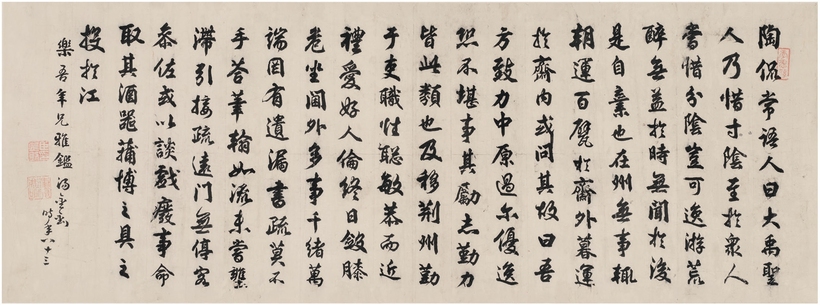 陶侃常语人曰大禹聖
人乃惜寸陰至於衆人
當惜分陰豈可逸游荒
醉無益於時無聞於後
是自棄也在州無事輒
朝運百甓於齋外暮運
於齋内或問其故曰吾
方致力中原過尔優逸
恐不堪事其勵志勤力
皆此類也及移荆州勤
于吏職性聪敏恭而近
禮愛好人倫終日斂膝
危坐閫外多事千緒萬
端罔有遺漏書疏莫不
手荅筆翰如流未嘗壅
滯引接疏遠門無停客
叅佐或以談戲廢事命
取其酒器蒲博之具之
投於江
樂吾年兄雅鑑
時年八十三